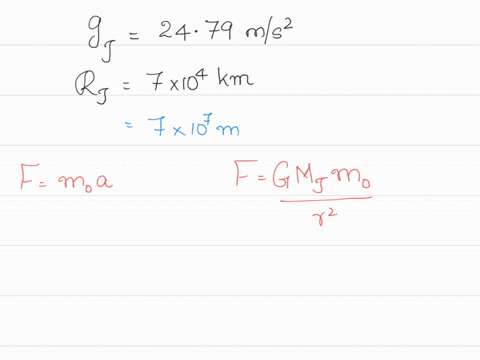 g_J = 24.79 m/s²
R_J = 7×10⁴ km
= 7×10⁷ m
F = m₀a
F = GM_J m₀ / r²